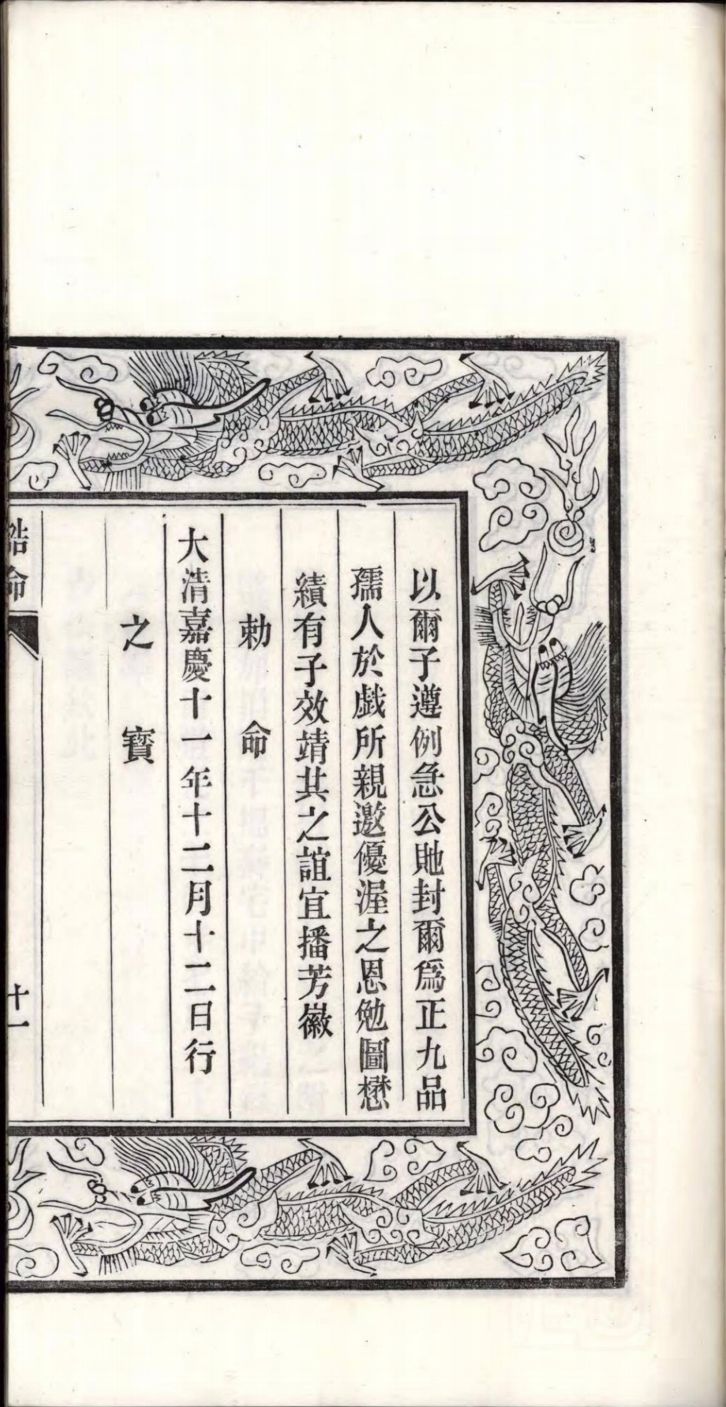 以爾子遵例急公貤封爾爲正九品
孺人於戲所親邀優渥之恩勉圖懋
績有子效靖其之誼宜播芳徽
勅命
大清嘉慶十一年十二月十二日行
之寶
誥命
十一